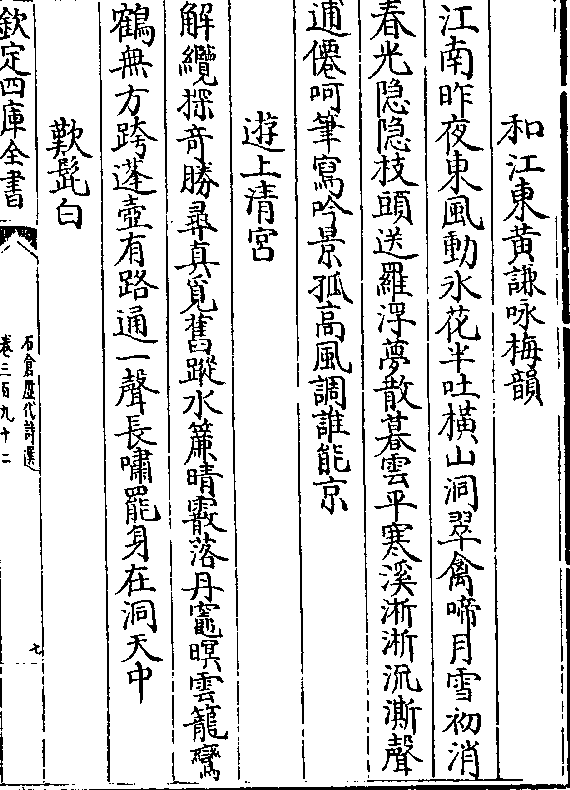 和江東黃謙咏梅韻
江南昨夜東風動氷花半吐橫山洞翠禽啼月雪初消
春光隐隐枝頭送羅浮夢散暮雲平寒溪淅淅流澌聲
逋僊呵筆寫吟景孤高風調誰能京
遊上清宮
解纜探奇勝尋真覓舊蹤水簾晴霰落丹竈暝雲籠鸞
鶴無方跨蓬壺有路通一聲長嘯罷身在洞天中
歎髭白
欽定四庫全書
石倉歷代詩選
卷三百九十二
七